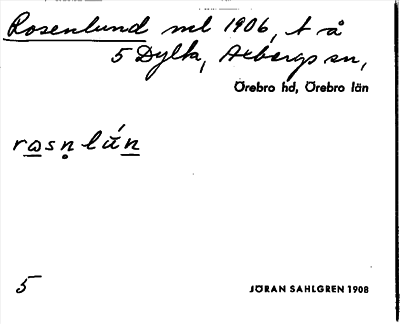 Rosenlund ml 1906, t å
5 Dylta, Axbergs sn,
Örebro hd, Örebro län
rωsṇlú́n
5
JÖRAN SAHLGREN 1908